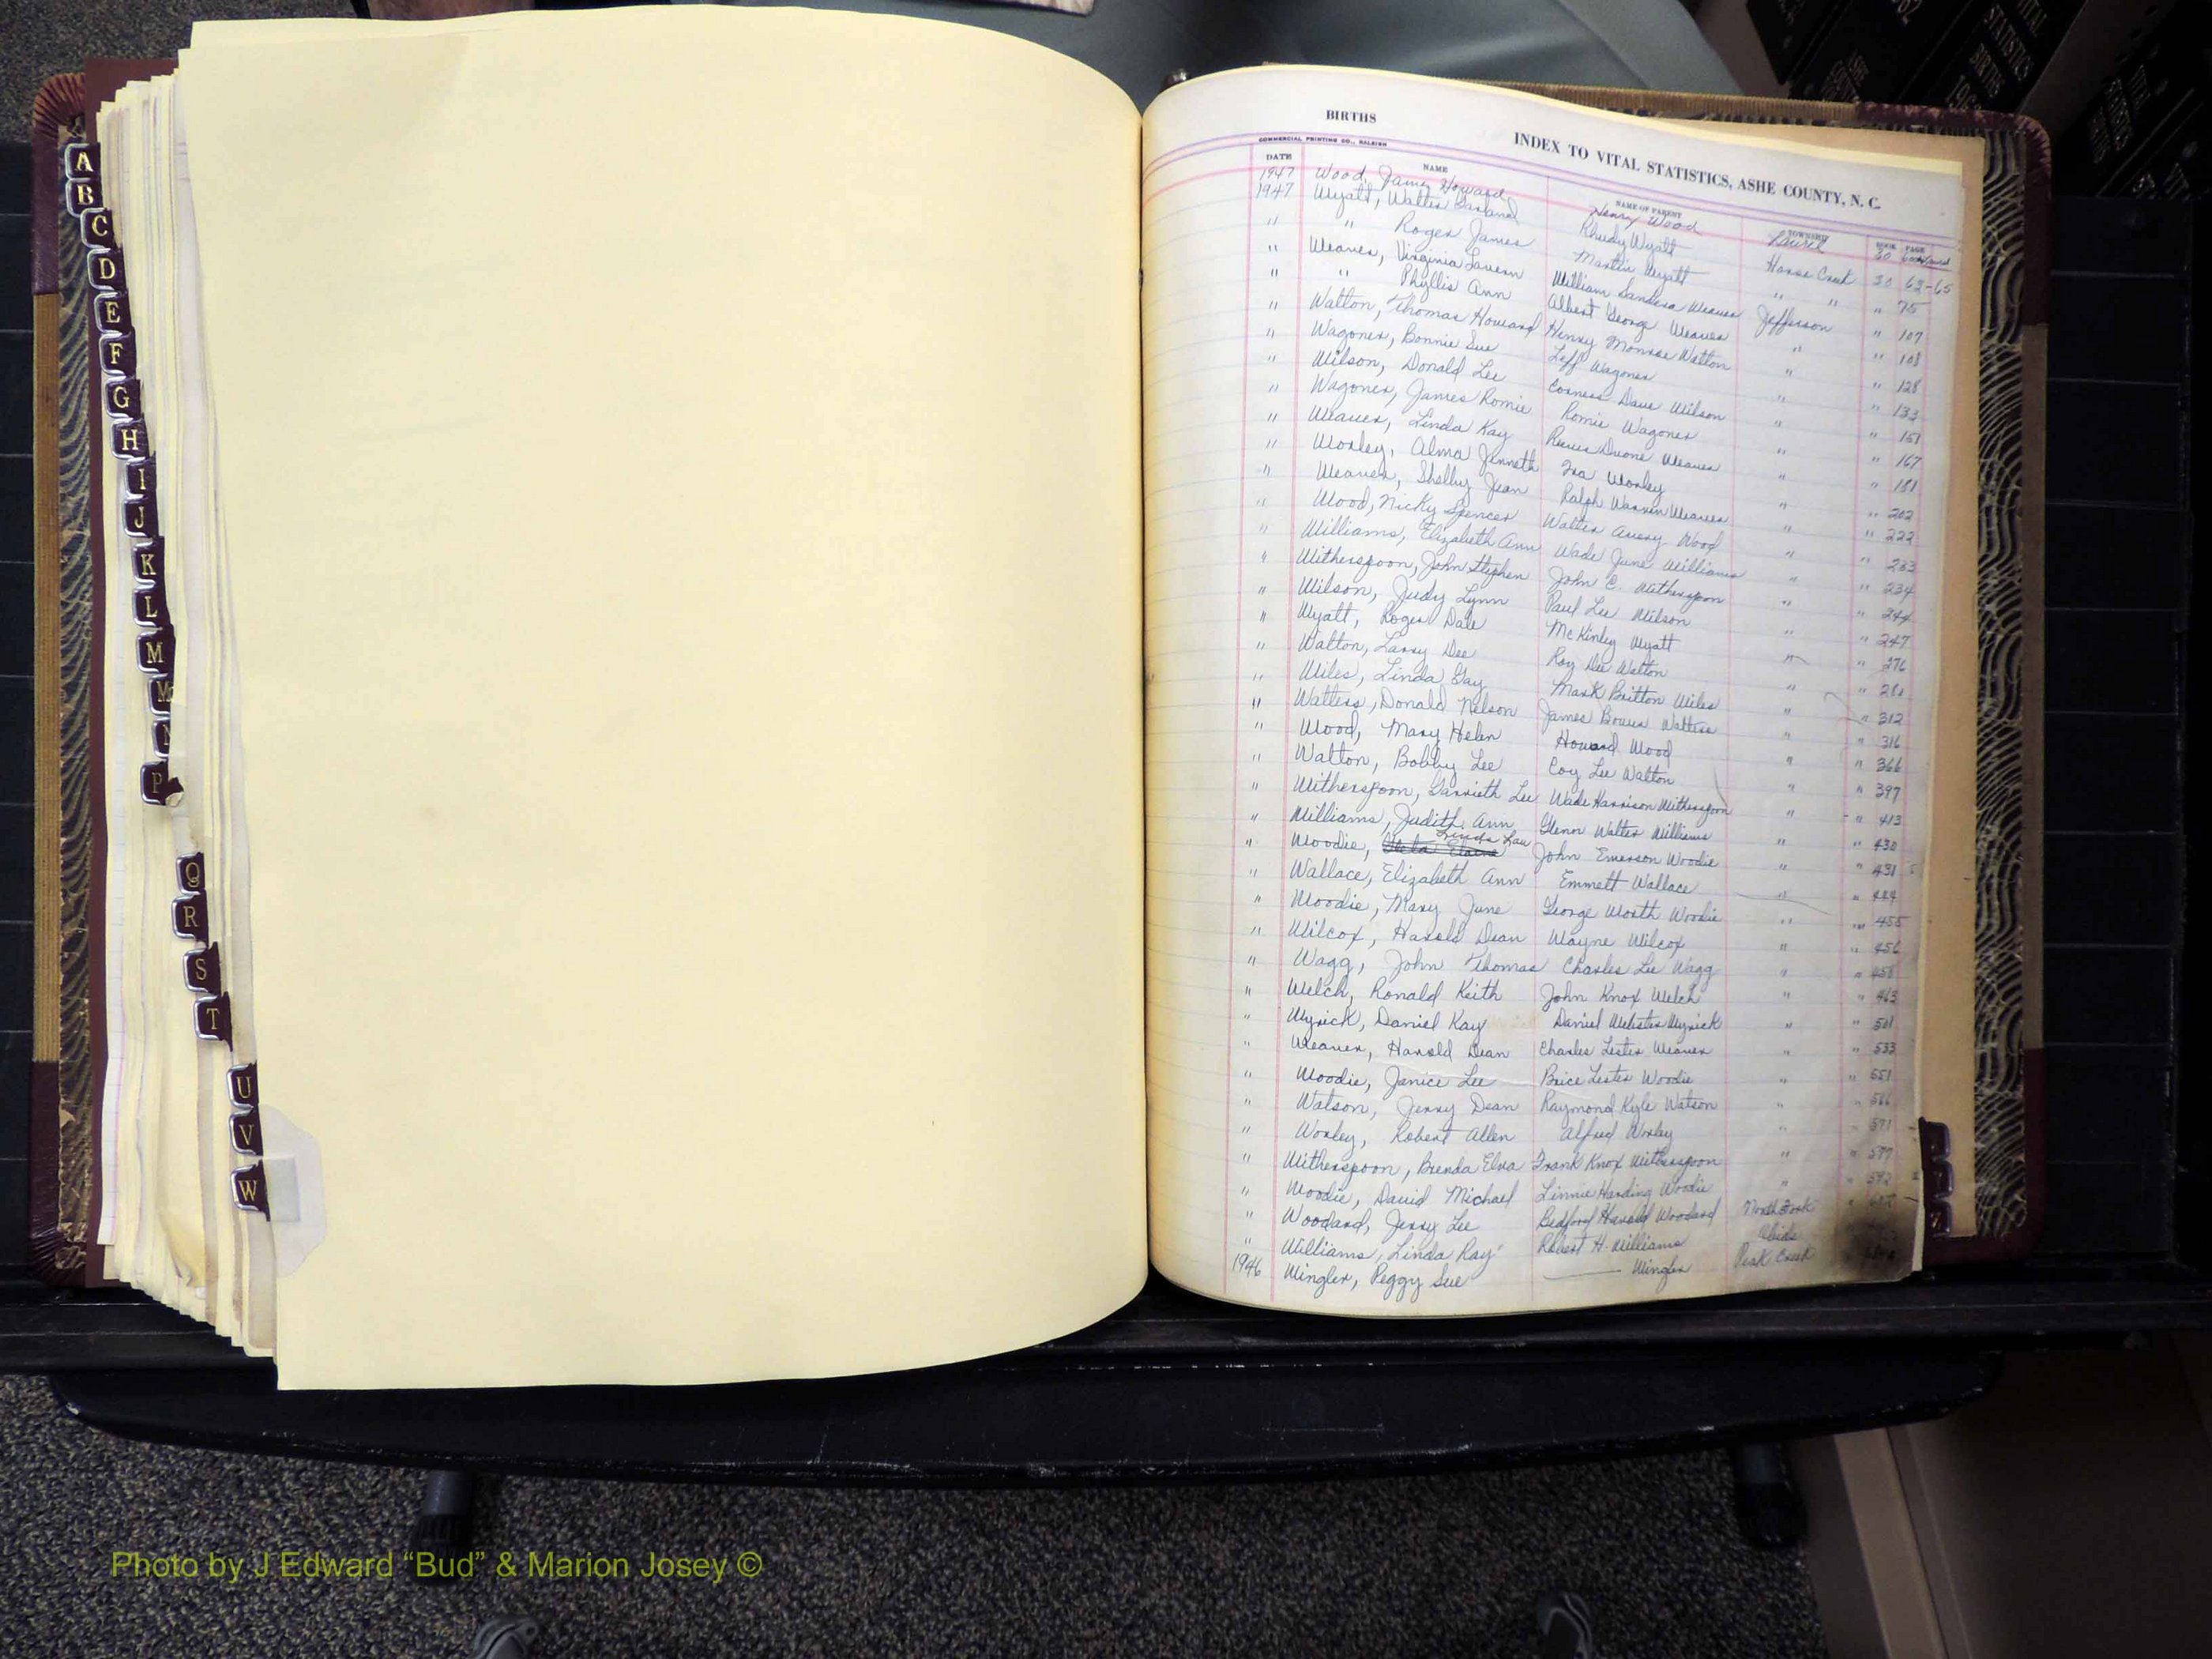 BIRTHS
INDEX TO VITAL STATISTICS, ASHE COUNTY, N. C.
COMMERCIAL PRINTING CO., RALEIGH
DATE NAME NAME OF PARENT TOWNSHIP BOOK PAGE
1947 Wood, James Howard Henry Wood Laurel 30
1947 Wyatt, Walter Garland Rhudy Wyatt Horse Creek 30 62-65
" " Roger James Martin Wyatt " " " 75
" Weaver, Virginia Lavern William Sanders Weaver Jefferson " 107
" " Phyllis Ann Albert George Weaver " " 108
" Walton, Thomas Howard Henry Monroe Walton " " 128
" Wagoner, Bonnie Sue Leff Wagoner " " 133
" Wilson, Donald Lee Dave Wilson " " 151
" Wagoner, James Romie Romie Wagoner " " 167
" Weaver, Linda Kay Reeves Duone Weaver " " 181
" Worley, Alma Jenneth Ira Worley " " 202
" Weaver, Shelby Jean Ralph Warren Weaver " " 222
" Wood, Nicky Spencer Walter Avery Wood " " 233
" Williams, Elizabeth Ann Wade June Williams " " 234
" Witherspoon, John Stephen John C. Witherspoon " " 244
" Wilson, Judy Lynn Paul Lee Wilson " " 247
" Wyatt, Roger Dale McKinley Wyatt " " 276
" Walton, Larry Dee Roy Dee Walton " " 281
" Wiles, Linda Gay Mark Britton Wiles " " 312
" Watters, Donald Nelson James Bower Watters " " 316
" Wood, Mary Helen Howard Wood " " 366
" Walton, Bobby Lee Coy Lee Walton " " 397
" Witherspoon, Garrieth Lee Wade Harrison Witherspoon " " 413
" Williams, Judith Ann Glenn Walter Williams " " 430
" Woodie, Linda Lou John Emerson Woodie " " 431
" Wallace, Elizabeth Ann Emmett Wallace " " 444
" Woodie, Mary June George Worth Woodie " " 455
" Wilcox, Harold Dean Wayne Wilcox " " 456
" Wagg, John Thomas Charles Lee Wagg " 458
" Welch, Ronald Keith John Knox Welch " " 463
" Wyrick, Daniel Kay Daniel Webster Wyrick " " 501
" Weaver, Harold Dean Charles Lester Weaver " 533
" Woodie, Janice Lee Brice Lester Woodie " " 551
" Watson, Jerry Dean Raymond Kyle Watson " " 566
" Worley, Robert Allen Alfred Worley " " 571
" Witherspoon, Brenda Elva Frank Knox Witherspoon " " 577
" Woodie, David Michael Linnie Harding Woodie " " 592
" Woodard, Jerry Lee Bedford Harold Woodard North Fork
" Williams, Linda Ray Robert H. Williams Obids
1946 Wingler, Peggy Sue Wingler Peak Creek
A
B
C
D
E
F
G
H
I
J
K
L
M
Mc
N
P
Q
R
S
T
U
V
W
VITAL STATISTICS BIRTHS
Photo by J Edward “Bud” & Marion Josey ©